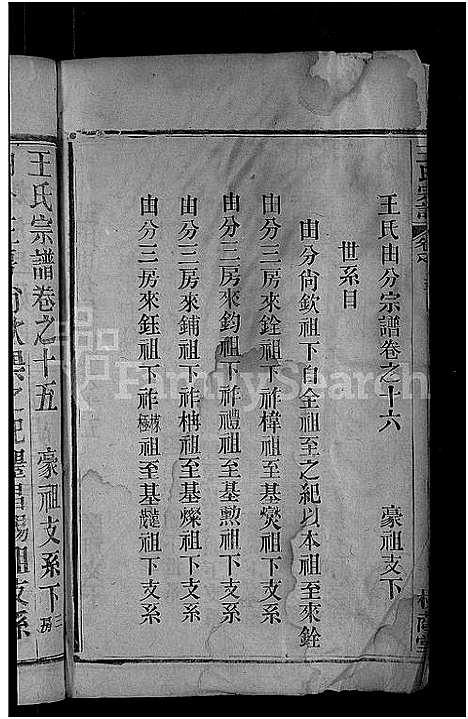 王氏由分宗譜卷之十六 豪祖支下
世系目
由分尙欽祖下自全祖至之紀以本祖至來銓
由分三房來銓祖下祚樟祖至基熒祖下支系
由分三房來鈞祖下祚禮祖至基勲祖下支系
由分三房來鋪祖下祚栴祖至基燦祖下支系
由分三房來鈺祖下祚祖至基祖下支系
王氏宗譜卷之十五 豪祖支系下 三房
FamilySearch